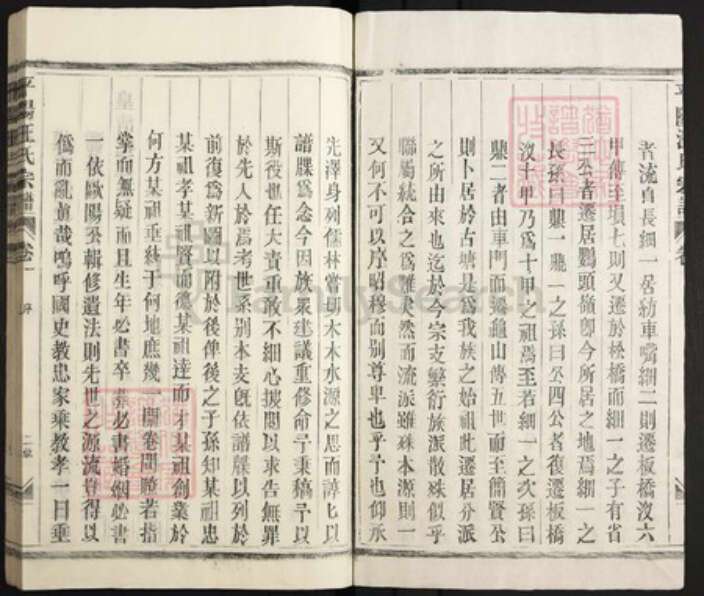 者流自長細一居紡車嘴細二則遷板橋沒六
甲傳至塤七則又遷於松橋而細一之子有省
三公者遷居鸚頭嶺卽今所居之地焉細一之
長孫曰顯一曉一之孫曰公四公者復遷板橋
沒十甲乃爲十甲之祖焉至若細一之次孫曰
顯二者由車門而遷龜山傳五世而至簡賢公
則卜居於古塘是爲我族之始祖此遷居分派
之所由來也迄於今宗支繁衍族派散殊似乎
聯屬統合之爲難矣然而流派雖殊本源則一
又何不可以序昭穆而别尊卑也乎予也仰承
先澤身列儒林嘗切木本水源之思而諄匕以
譜牒爲念今因族衆建議重修命予秉稿予以
斯役也任大責重敢不細心披閱以求告無罪
於先人於焉考世系别本支旣依譜牒以列於
前復爲新圖以附於後俾後之子孫知某祖忠
某祖孝某祖賢而德某祖達而才某祖創業於
何方某祖垂終于何地庶幾一開卷間瞭若指
掌而無疑而且生年必書卒葬必書婚姻必書
一依歐陽公輯修遺法則先世之源流豈得以
僞而亂眞哉嗚呼國史教忠家乘教孝一日垂
平陽汪氏宗譜
卷一
序
二
FamilySearch